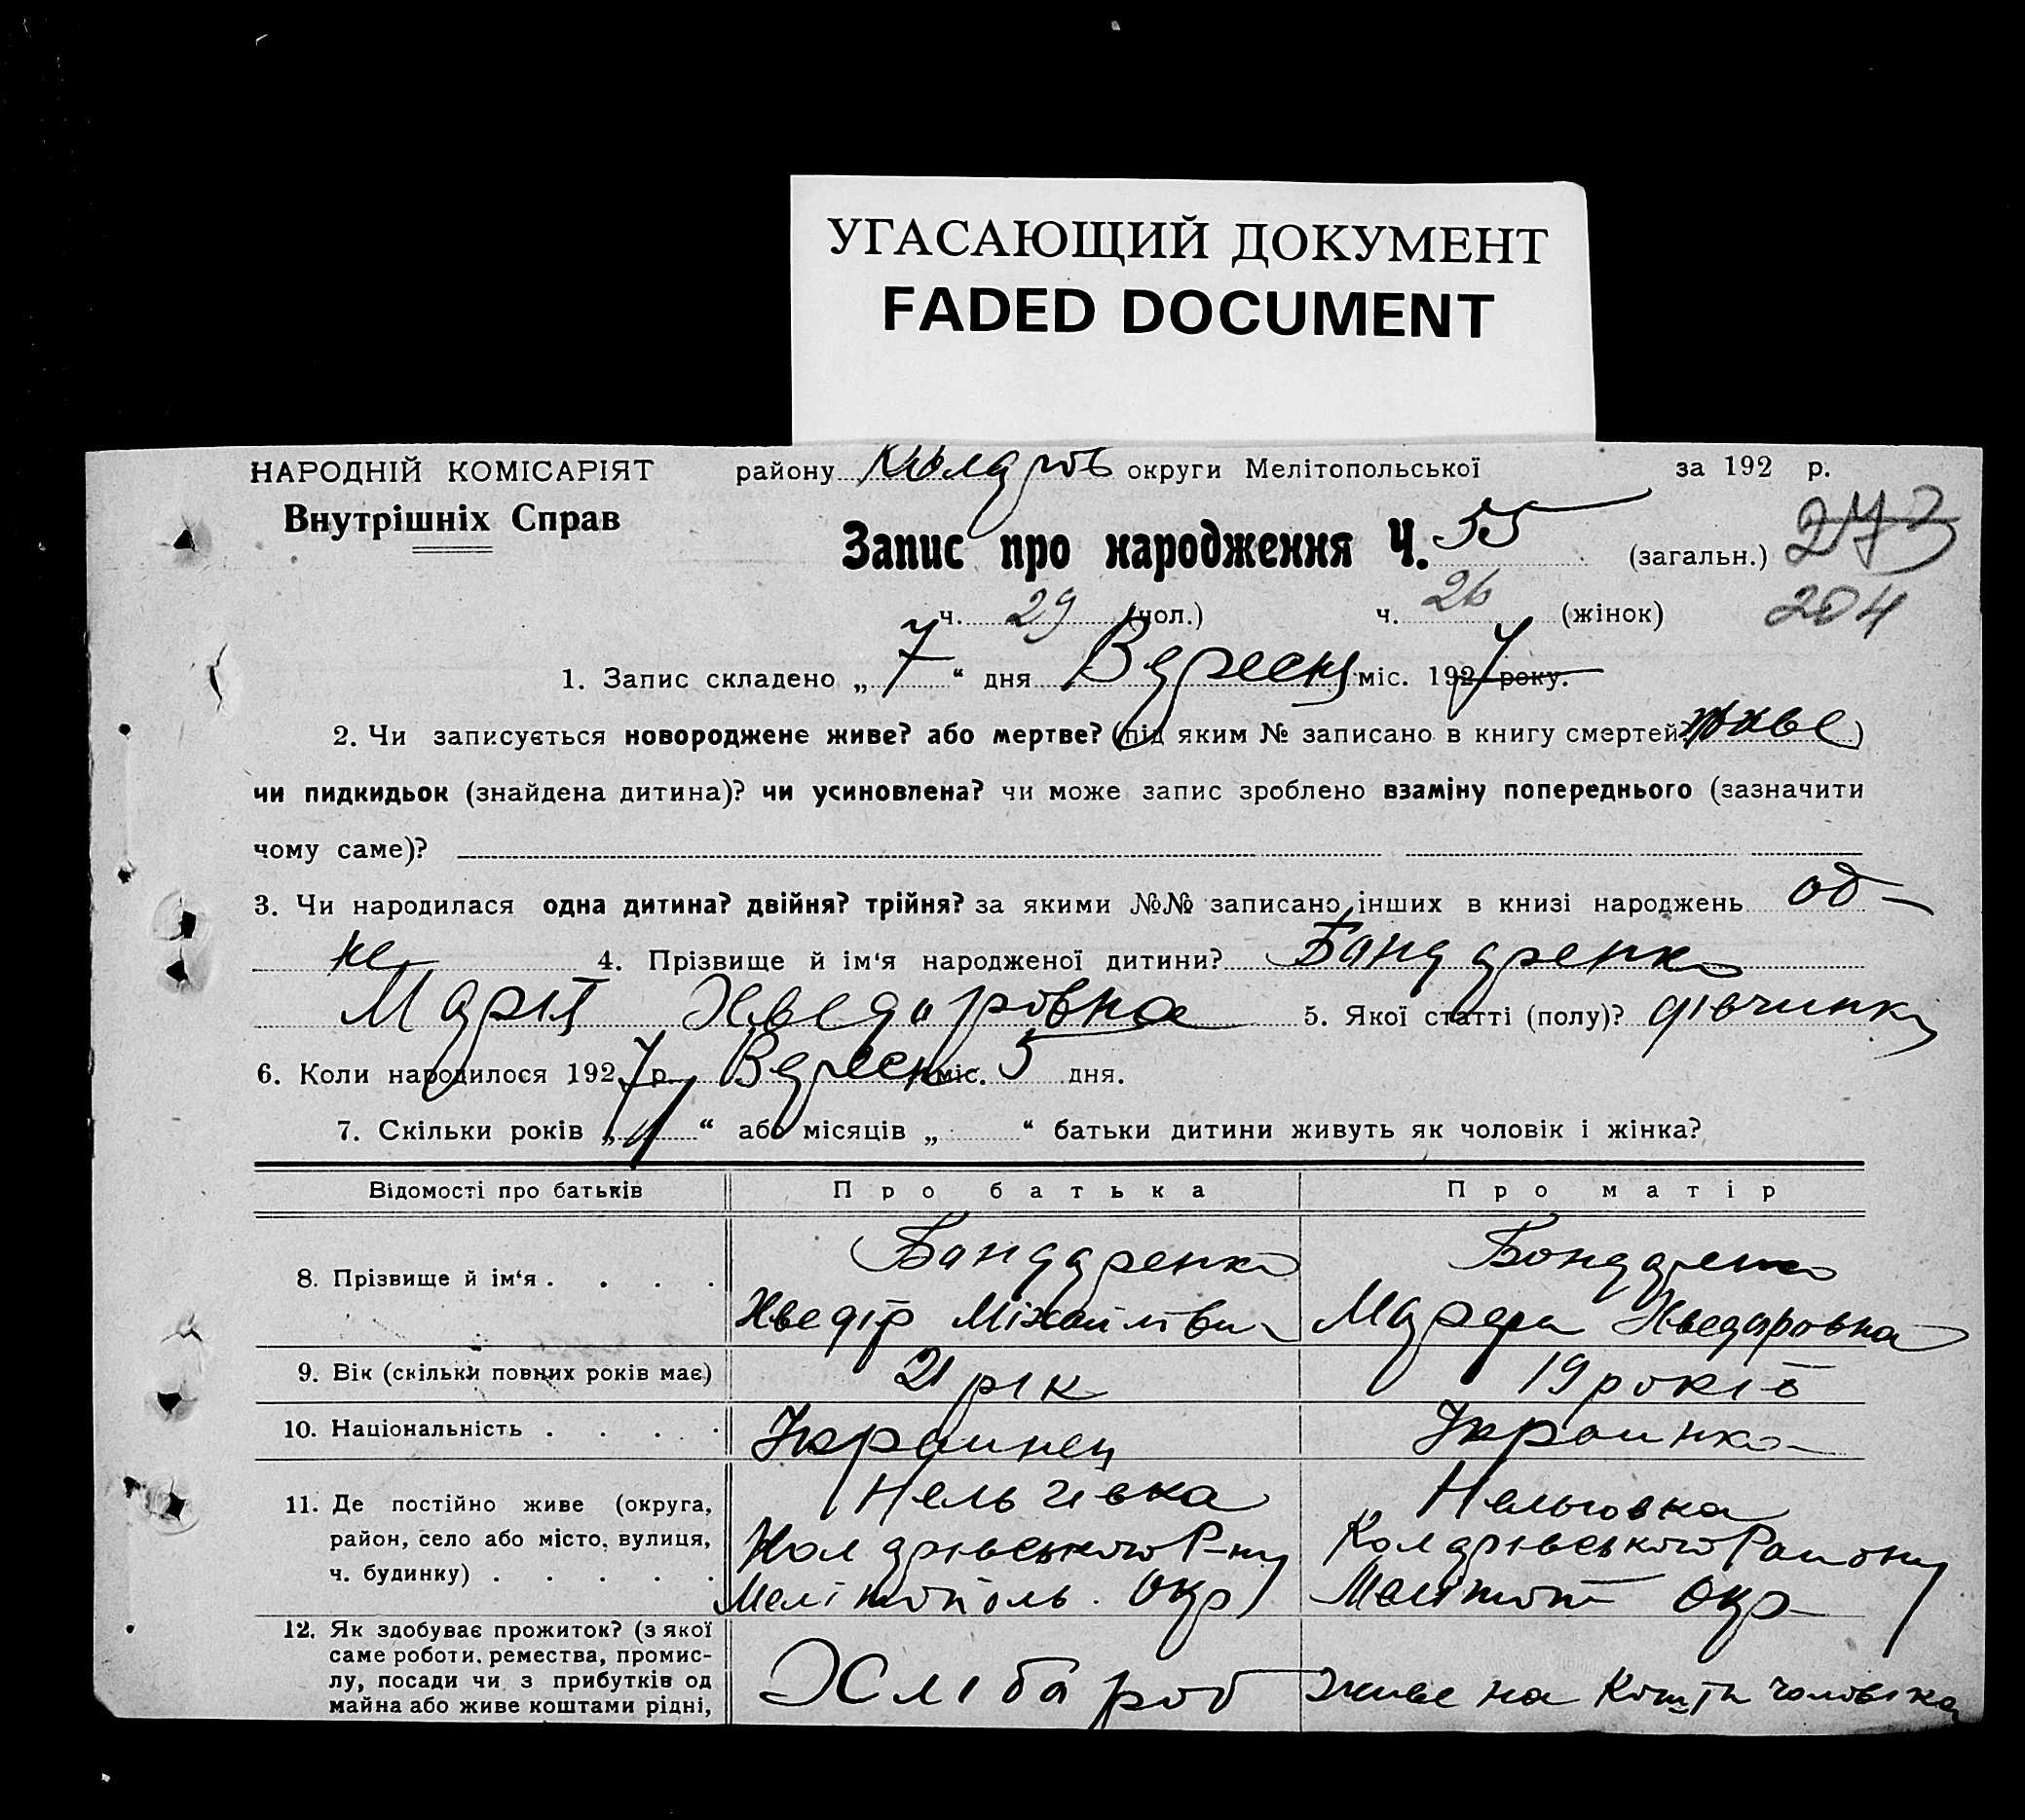 УГАСАЮЩИЙ ДОКУМЕНТ
FADED DOCUMENT
НАРОДНІЙ КОМІСАРІЯТ
Внутрішніх Справ
району округи Мелітопольської за 192 р.
Запис про народження Ч. 55 (загальн.) 273
204
ч. 29 (чол.) ч. 26 (жінок)
1. Запис складено „7“ дня Вересня міс. 1927 року.
2. Чи записується новороджене живе? або мертве? (під яким № записано в книгу смертей? живе)
чи пидкидьок (знайдена дитина)? чи усиновлена? чи може запис зроблено взаміну попереднього (зазначити
чому саме)?
3. Чи народилася одна дитина? двійня? трійня? за якими №№ записано інших в книзі народжень од-
не 4. Прізвище й ім'я народженої дитини? Бондаренко
Марія Хведоровна 5. Якої статті (полу)? дівчинка
6. Коли народилося 1927 р. Вересн міс. 5 дня.
7. Скільки років „1“ або місяців „ “ батьки дитини живуть як чоловік і жінка?
Відомості про батьків Про батька Про матір
8. Прізвище й ім'я . . . . Бондаренко Бондаренко
Хведір Міхайлови Хведоровна
9. Вік (скільки повних років має) 21 рік 19 років
10. Національність . . . . Украинец Украинка
11. Де постійно живе (округа, Нельгивка Нельговка
район, село або місто, вулиця, Колдрівського Р-ну Колдрівського Району
ч. будинку) . . . . . Мелітополь. Окр Мелітоп Окр
12. Як здобуває прожиток? (з якої
саме роботи, ремества, промис-
лу, посади чи з прибутків од
майна або живе коштами рідні, Хлібороб Живе на Кошти чоловіка